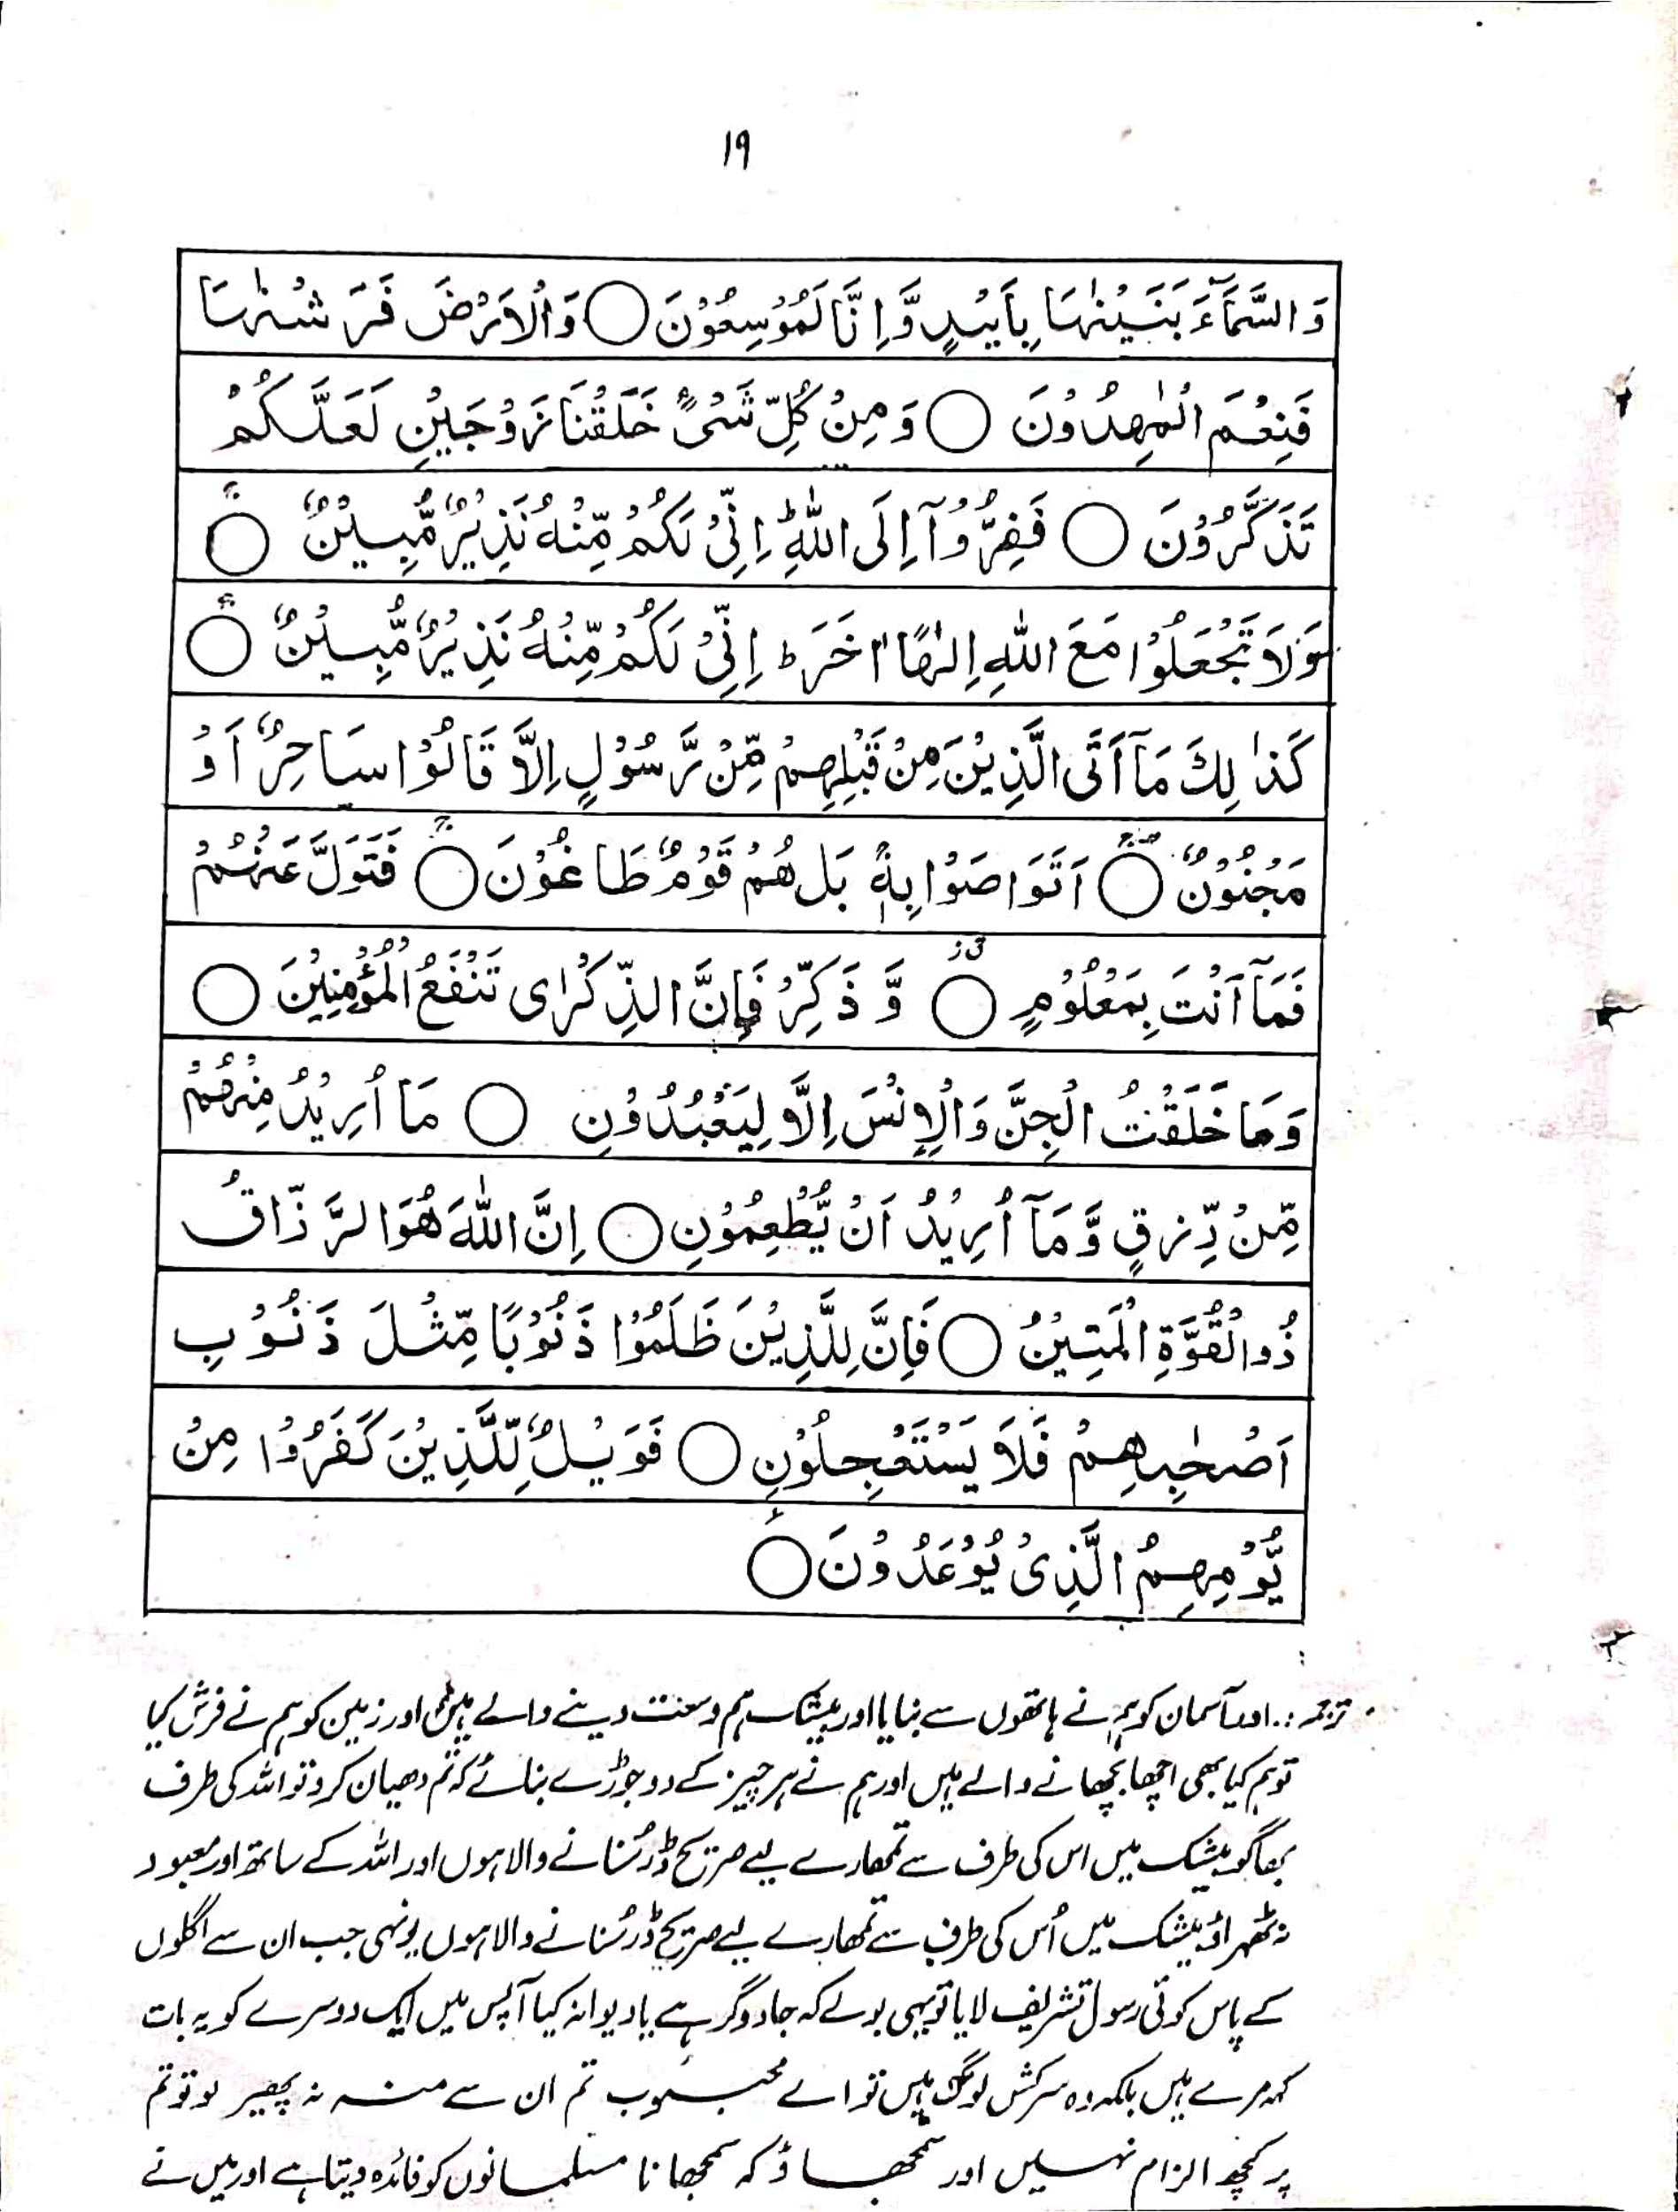 ۱۹
وَالسَّمَآءَ بَنَيْنٰهَا بِاَيْىدٍ وَّاِنَّا لَمُوْسِعُوْنَ ◯ وَالْاَرْضَ فَرَشْنٰهَا
فَنِعْمَ الْمٰهِدُوْنَ ◯ وَمِنْ كُلِّ شَىْءٍ خَلَقْنَا زَوْجَيْنِ لَعَلَّكُمْ
تَذَكَّرُوْنَ ◯ فَفِرُّوْآ اِلَى اللّٰهِ ؕ اِنِّىْ لَكُمْ مِّنْهُ نَذِيْرٌ مُّبِيْنٌ ◯ ۚ
وَلَا تَجْعَلُوْا مَعَ اللّٰهِ اِلٰهًا اٰخَرَ ؕ اِنِّىْ لَكُمْ مِّنْهُ نَذِيْرٌ مُّبِيْنٌ ◯ ۚ
كَذٰلِكَ مَآ اَتَى الَّذِيْنَ مِنْ قَبْلِهِمْ مِّنْ رَّسُوْلٍ اِلَّا قَالُوْا سَاحِرٌ اَوْ
مَجْنُوْنٌ ◯ اَتَوَاصَوْا بِهٖ ۚ بَلْ هُمْ قَوْمٌ طَاغُوْنَ ◯ ۚ فَتَوَلَّ عَنْهُمْ
فَمَآ اَنْتَ بِمَعْلُوْمٍ ◯ وَّ ذَكِّرْ فَاِنَّ الذِّكْرٰى تَنْفَعُ الْمُؤْمِنِيْنَ ◯
وَمَا خَلَقْتُ الْجِنَّ وَالْاِنْسَ اِلَّا لِيَعْبُدُوْنِ ◯ مَا اُرِيْدُ مِنْهُمْ
مِّنْ رِّزْقٍ وَّمَآ اُرِيْدُ اَنْ يُّطْعِمُوْنِ ◯ اِنَّ اللّٰهَ هُوَ الرَّزَّاقُ
ذُو الْقُوَّةِ الْمَتِيْنُ ◯ فَاِنَّ لِلَّذِيْنَ ظَلَمُوْا ذَنُوْبًا مِّثْلَ ذَنُوْبِ
اَصْحٰبِهِمْ فَلَا يَسْتَعْجِلُوْنِ ◯ فَوَيْلٌ لِّلَّذِيْنَ كَفَرُوْا مِنْ
يَّوْمِهِمُ الَّذِىْ يُوْعَدُوْنَ ◯
ترجمہ:۔ اور آسمان کو ہم نے ہاتھوں سے بنایا اور بیشک ہم وسعت دینے والے ہیں اور زمین کو ہم نے فرش کیا
تو ہم کیا بھی اچھا بچھانے والے ہیں اور ہم نے ہر چیز کے دو جوڑے بنائے کہ تم دھیان کرو تو اللہ کی طرف
بھاگو بیشک میں اس کی طرف سے تمھارے لیے صریح ڈر سُنانے والا ہوں اور اللہ کے ساتھ اور معبود
نہ ٹھہراؤ بیشک میں اُس کی طرف سے تمھارے لیے صریح ڈر سُنانے والا ہوں یونہی جب ان سے اگلوں
کے پاس کوئی رسول تشریف لایا تو یہی بولے کہ جادوگر ہے یا دیوانہ کیا آپس میں ایک دوسرے کو یہ بات
کہہ مرے ہیں بلکہ وہ سرکش لوگ ہیں تو اے محبوب تم ان سے منہ نہ پھیر لو تو تم
پر کچھ الزام نہیں اور سمجھاؤ کہ سمجھانا مسلمانوں کو فائدہ دیتا ہے اور میں نے